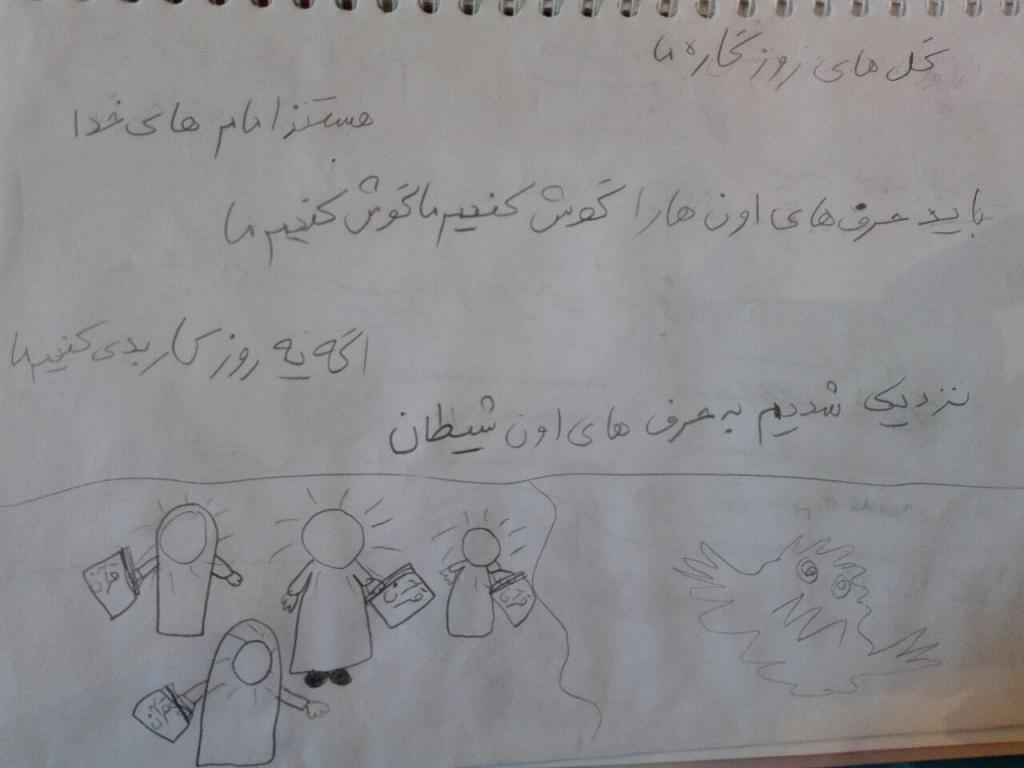 گل های روزگاره ما
هستند امام های خدا
باید حرف های اون ها را گوش کنیم ما گوش کنیم ما
اگه یه روز کار بدی کنیم ما
نزدیک شدیم به حرف های اون شیطان
قرآن
قرآن
قرآن
قرآن